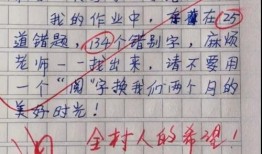 我的作业中，存在25
道错题，134个错别字，麻烦
老师一一找出来，请不要用
一个“阅”字换我们两个月的
美好时光！
全村人的希望！